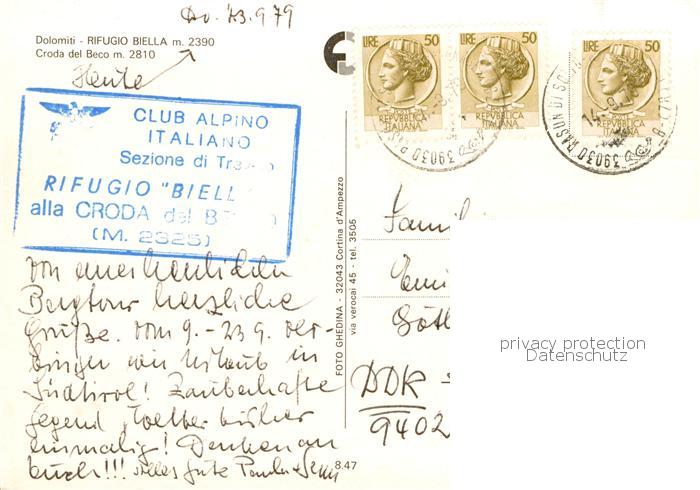 Do. 13.9.79
Dolomiti - RIFUGIO BIELLA m. 2390
Croda del Beco m. 2810
Heute
CLUB ALPINO
ITALIANO
Sezione di
RIFUGIO "BIELL
alla CRODA del B
(M. 2325)
von einer herrlichen
Bergtour herzliche
Grüße. Vom 9.-23.9. ver-
bringen wir Urlaub in
Südtirol! Zauberhafte
Gegend, Wetter bisher
einmalig! Denken an
Euch!!! Alles Gute
8.47
FOTO GHEDINA - 32043 Cortina d'Ampezzo
via verocai 45 - tel. 3505
LIRE 50
REPVBBLICA
ITALIANA
LIRE 50
REPVBBLICA
ITALIANA
LIRE 50
REPVBBLICA
ITALIANA
39030
39030 RASUN DI
14.9.
Famili
DDR -
9402
privacy protection
Datenschutz